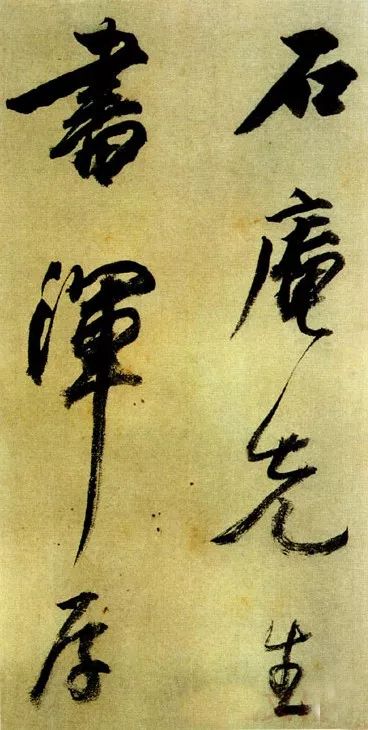 石庵先生
書渾厚